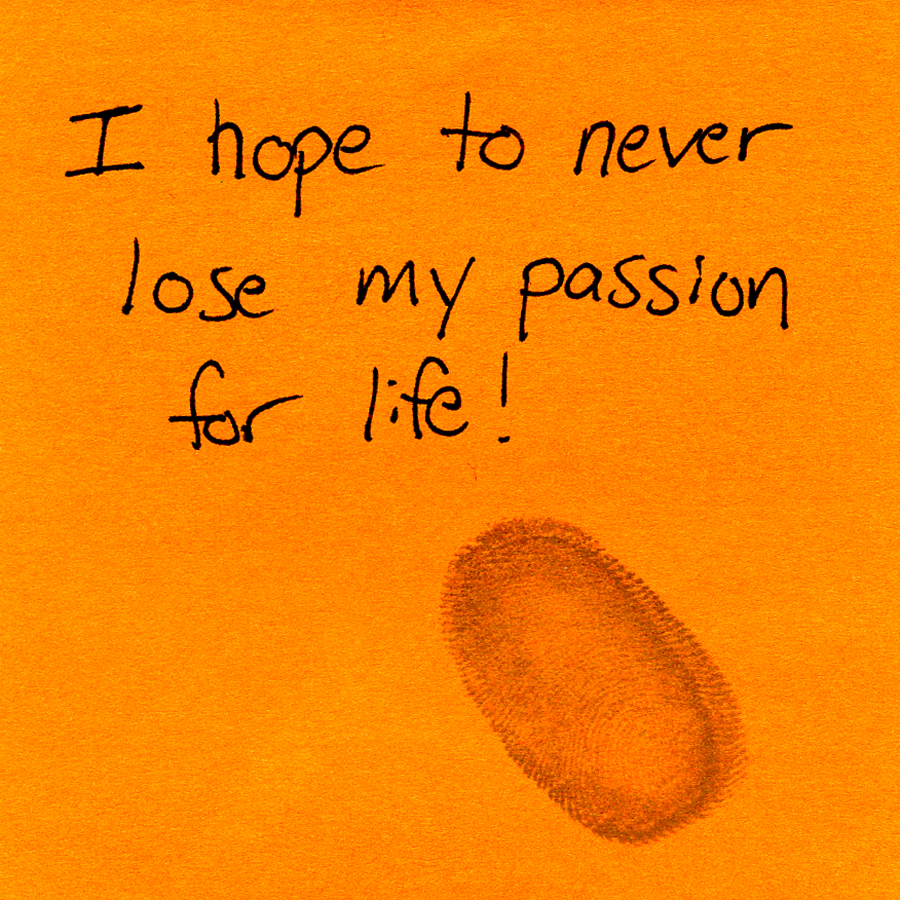 I hope to never
lose my passion
for life!